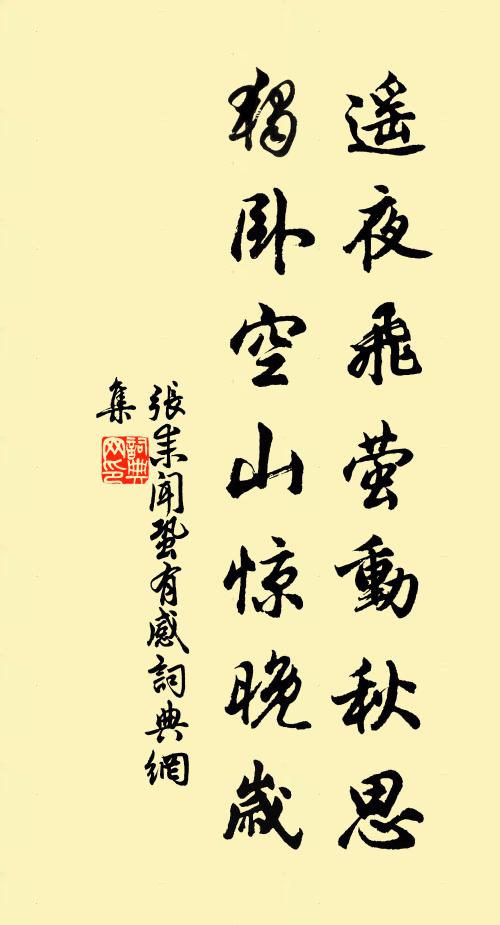 遥夜飛萤動秋思
獨卧空山惊晚歲
張耒聞蛩有感詞典網
集
詞典網印